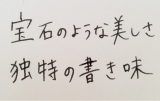 宝石のような美しさ
独特の書き味